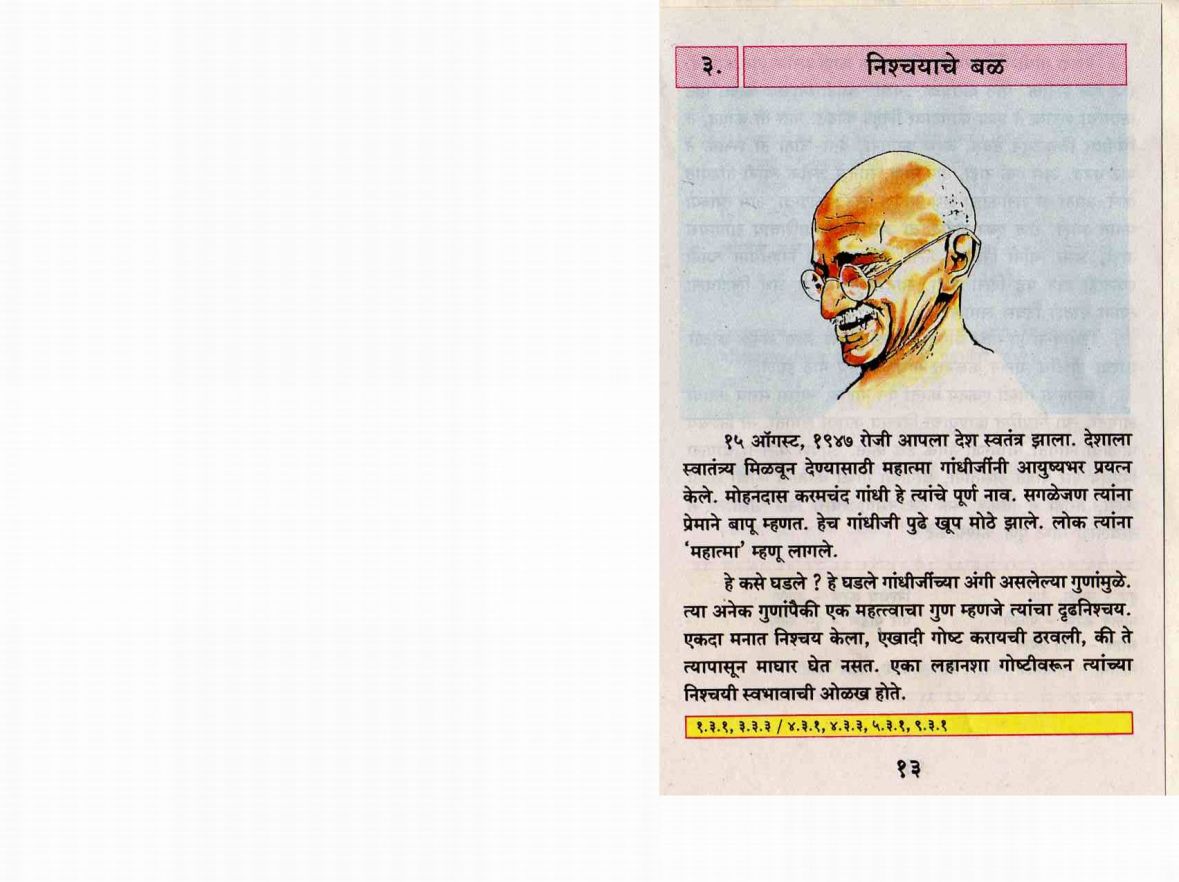 ३.
निश्चयाचे बळ
१५ ऑगस्ट, १९४७ रोजी आपला देश स्वतंत्र झाला. देशाला
स्वातंत्र्य मिळवून देण्यासाठी महात्मा गांधीजींनी आयुष्यभर प्रयत्न
केले. मोहनदास करमचंद गांधी हे त्यांचे पूर्ण नाव. सगळेजण त्यांना
प्रेमाने बापू म्हणत. हेच गांधीजी पुढे खूप मोठे झाले. लोक त्यांना
'महात्मा' म्हणू लागले.
हे कसे घडले ? हे घडले गांधीजींच्या अंगी असलेल्या गुणांमुळे.
त्या अनेक गुणांपैकी एक महत्त्वाचा गुण म्हणजे त्यांचा दृढनिश्चय.
एकदा मनात निश्चय केला, एखादी गोष्ट करायची ठरवली, की ते
त्यापासून माघार घेत नसत. एका लहानशा गोष्टीवरून त्यांच्या
निश्चयी स्वभावाची ओळख होते.
१.३.१, ३.३.३ / ४.३.१, ४.३.३, ५.३.१, ९.३.१
१३